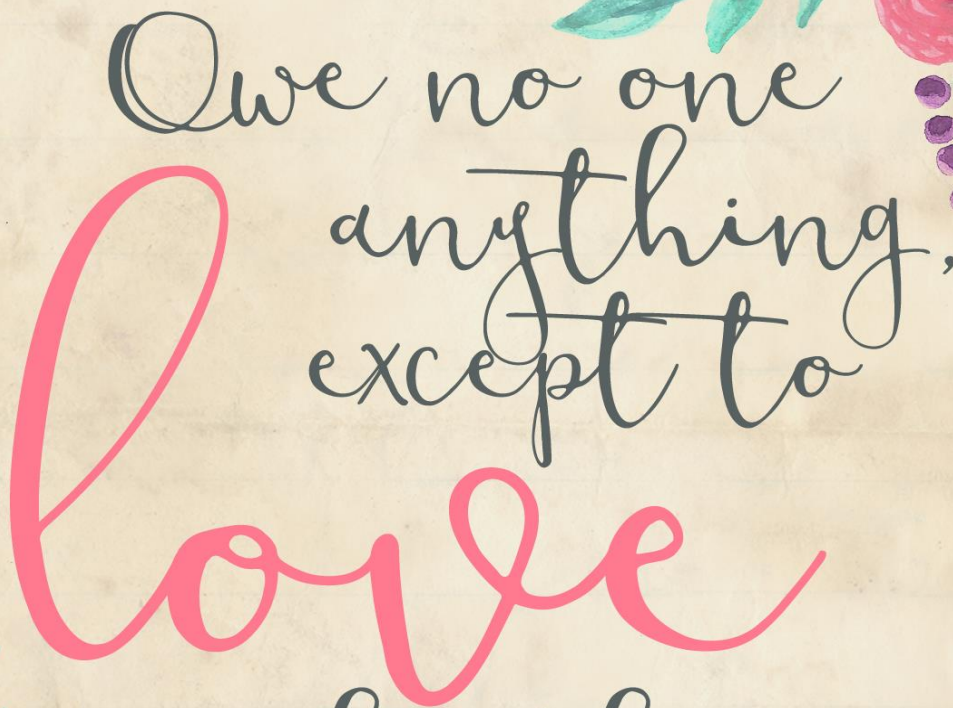 Owe no one
anything,
except to
love